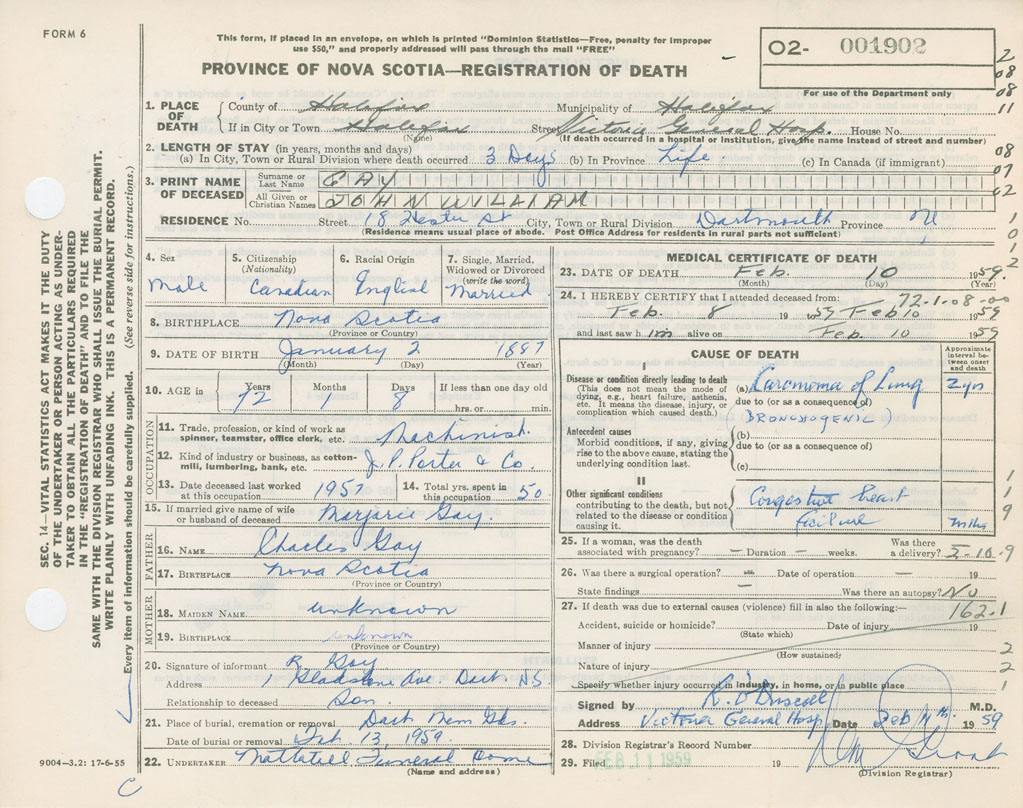 FORM 6
This form, if placed in an envelope, on which is printed "Dominion Statistics—Free, penalty for improper
use $50," and properly addressed will pass through the mail "FREE"
PROVINCE OF NOVA SCOTIA—REGISTRATION OF DEATH
O2- 001902
For use of the Department only
2
08
08
11
08
07
02
1
0
1
2
1. PLACE OF DEATH
County of Halifax Municipality of Halifax
If in City or Town Halifax Street Victoria General Hosp. House No.
(Name) (If death occurred in a hospital or institution, give the name instead of street and number)
2. LENGTH OF STAY (in years, months and days)
(a) In City, Town or Rural Division where death occurred 3 Days (b) In Province Life. (c) In Canada (if immigrant)
3. PRINT NAME OF DECEASED
Surname or Last Name GAY
All Given or Christian Names JOHN WILLIAM
RESIDENCE No. Street 18 Hester St City, Town or Rural Division Dartmouth Province
(Residence means usual place of abode. Post Office Address for residents in rural parts not sufficient)
4. Sex
Male
5. Citizenship
(Nationality)
Canadian
6. Racial Origin
English
7. Single, Married, Widowed or Divorced
(write the word)
Married
8. BIRTHPLACE Nova Scotia
(Province or Country)
9. DATE OF BIRTH January 2 1887
(Month) (Day) (Year)
10. AGE in Years Months Days If less than one day old
72 1 8 hrs. or min.
OCCUPATION
11. Trade, profession, or kind of work as
spinner, teamster, office clerk, etc. Machinist.
12. Kind of industry or business, as cotton-
mill, lumbering, bank, etc. J. P. Porter & Co.
13. Date deceased last worked
at this occupation 1957
14. Total yrs. spent in
this occupation 50
15. If married give name of wife
or husband of deceased Marjorie Gay.
FATHER
16. NAME Charles Gay
17. BIRTHPLACE Nova Scotia
(Province or Country)
MOTHER
18. MAIDEN NAME unknown
19. BIRTHPLACE unknown
(Province or Country)
20. Signature of informant R. Gay
Address 1 Gladstone Ave. Dart. N.S.
Relationship to deceased Son.
21. Place of burial, cremation or removal Dart Mem Gds.
Date of burial or removal Feb 13, 1959.
22. UNDERTAKER Funeral Home
(Name and address)
MEDICAL CERTIFICATE OF DEATH
23. DATE OF DEATH Feb. 10 1959.
(Month) (Day) (Year)
24. I HEREBY CERTIFY that I attended deceased from:
72-1-08-00
Feb. 8 1959 Feb 10 1959
and last saw him alive on Feb. 10 1959
CAUSE OF DEATH
Approximate interval between onset and death
I
Disease or condition directly leading to death
(This does not mean the mode of
dying, e.g., heart failure, asthenia,
etc. It means the disease, injury, or
complication which caused death.)
(a) Carcinoma of Lung 2 yrs
due to (or as a consequence of)
(BRONCHOGENIC)
Antecedent causes
Morbid conditions, if any, giving
rise to the above cause, stating the
underlying condition last.
(b)
due to (or as a consequence of)
(c)
II
Other significant conditions
contributing to the death, but not
related to the disease or condition
causing it.
Congestive heart
Failure mths
1
1
9
25. If a woman, was the death
associated with pregnancy? — Duration — weeks. Was there
a delivery? 2-10-9
26. Was there a surgical operation? — Date of operation — 19
State findings Was there an autopsy? No
27. If death was due to external causes (violence) fill in also the following:—
162.1
Accident, suicide or homicide? Date of injury 19
(State which)
Manner of injury 2
(How sustained)
Nature of injury 2
Specify whether injury occurred in industry, in home, or in public place 1
Signed by R. O'Driscoll M.D.
Address Victoria General Hosp Date Feb 11th 1959
28. Division Registrar's Record Number
29. Filed FEB 11 1959 19
(Division Registrar)
SEC. 14—VITAL STATISTICS ACT MAKES IT THE DUTY
OF THE UNDERTAKER OR PERSON ACTING AS UNDER-
TAKER TO OBTAIN ALL THE PARTICULARS REQUIRED
IN THE "REGISTRATION OF DEATH" AND TO FILE THE
SAME WITH THE DIVISION REGISTRAR WHO SHALL ISSUE THE BURIAL PERMIT.
WRITE PLAINLY WITH UNFADING INK. THIS IS A PERMANENT RECORD.
Every item of information should be carefully supplied. (See reverse side for instructions.)
9004-3.2: 17-6-55
C